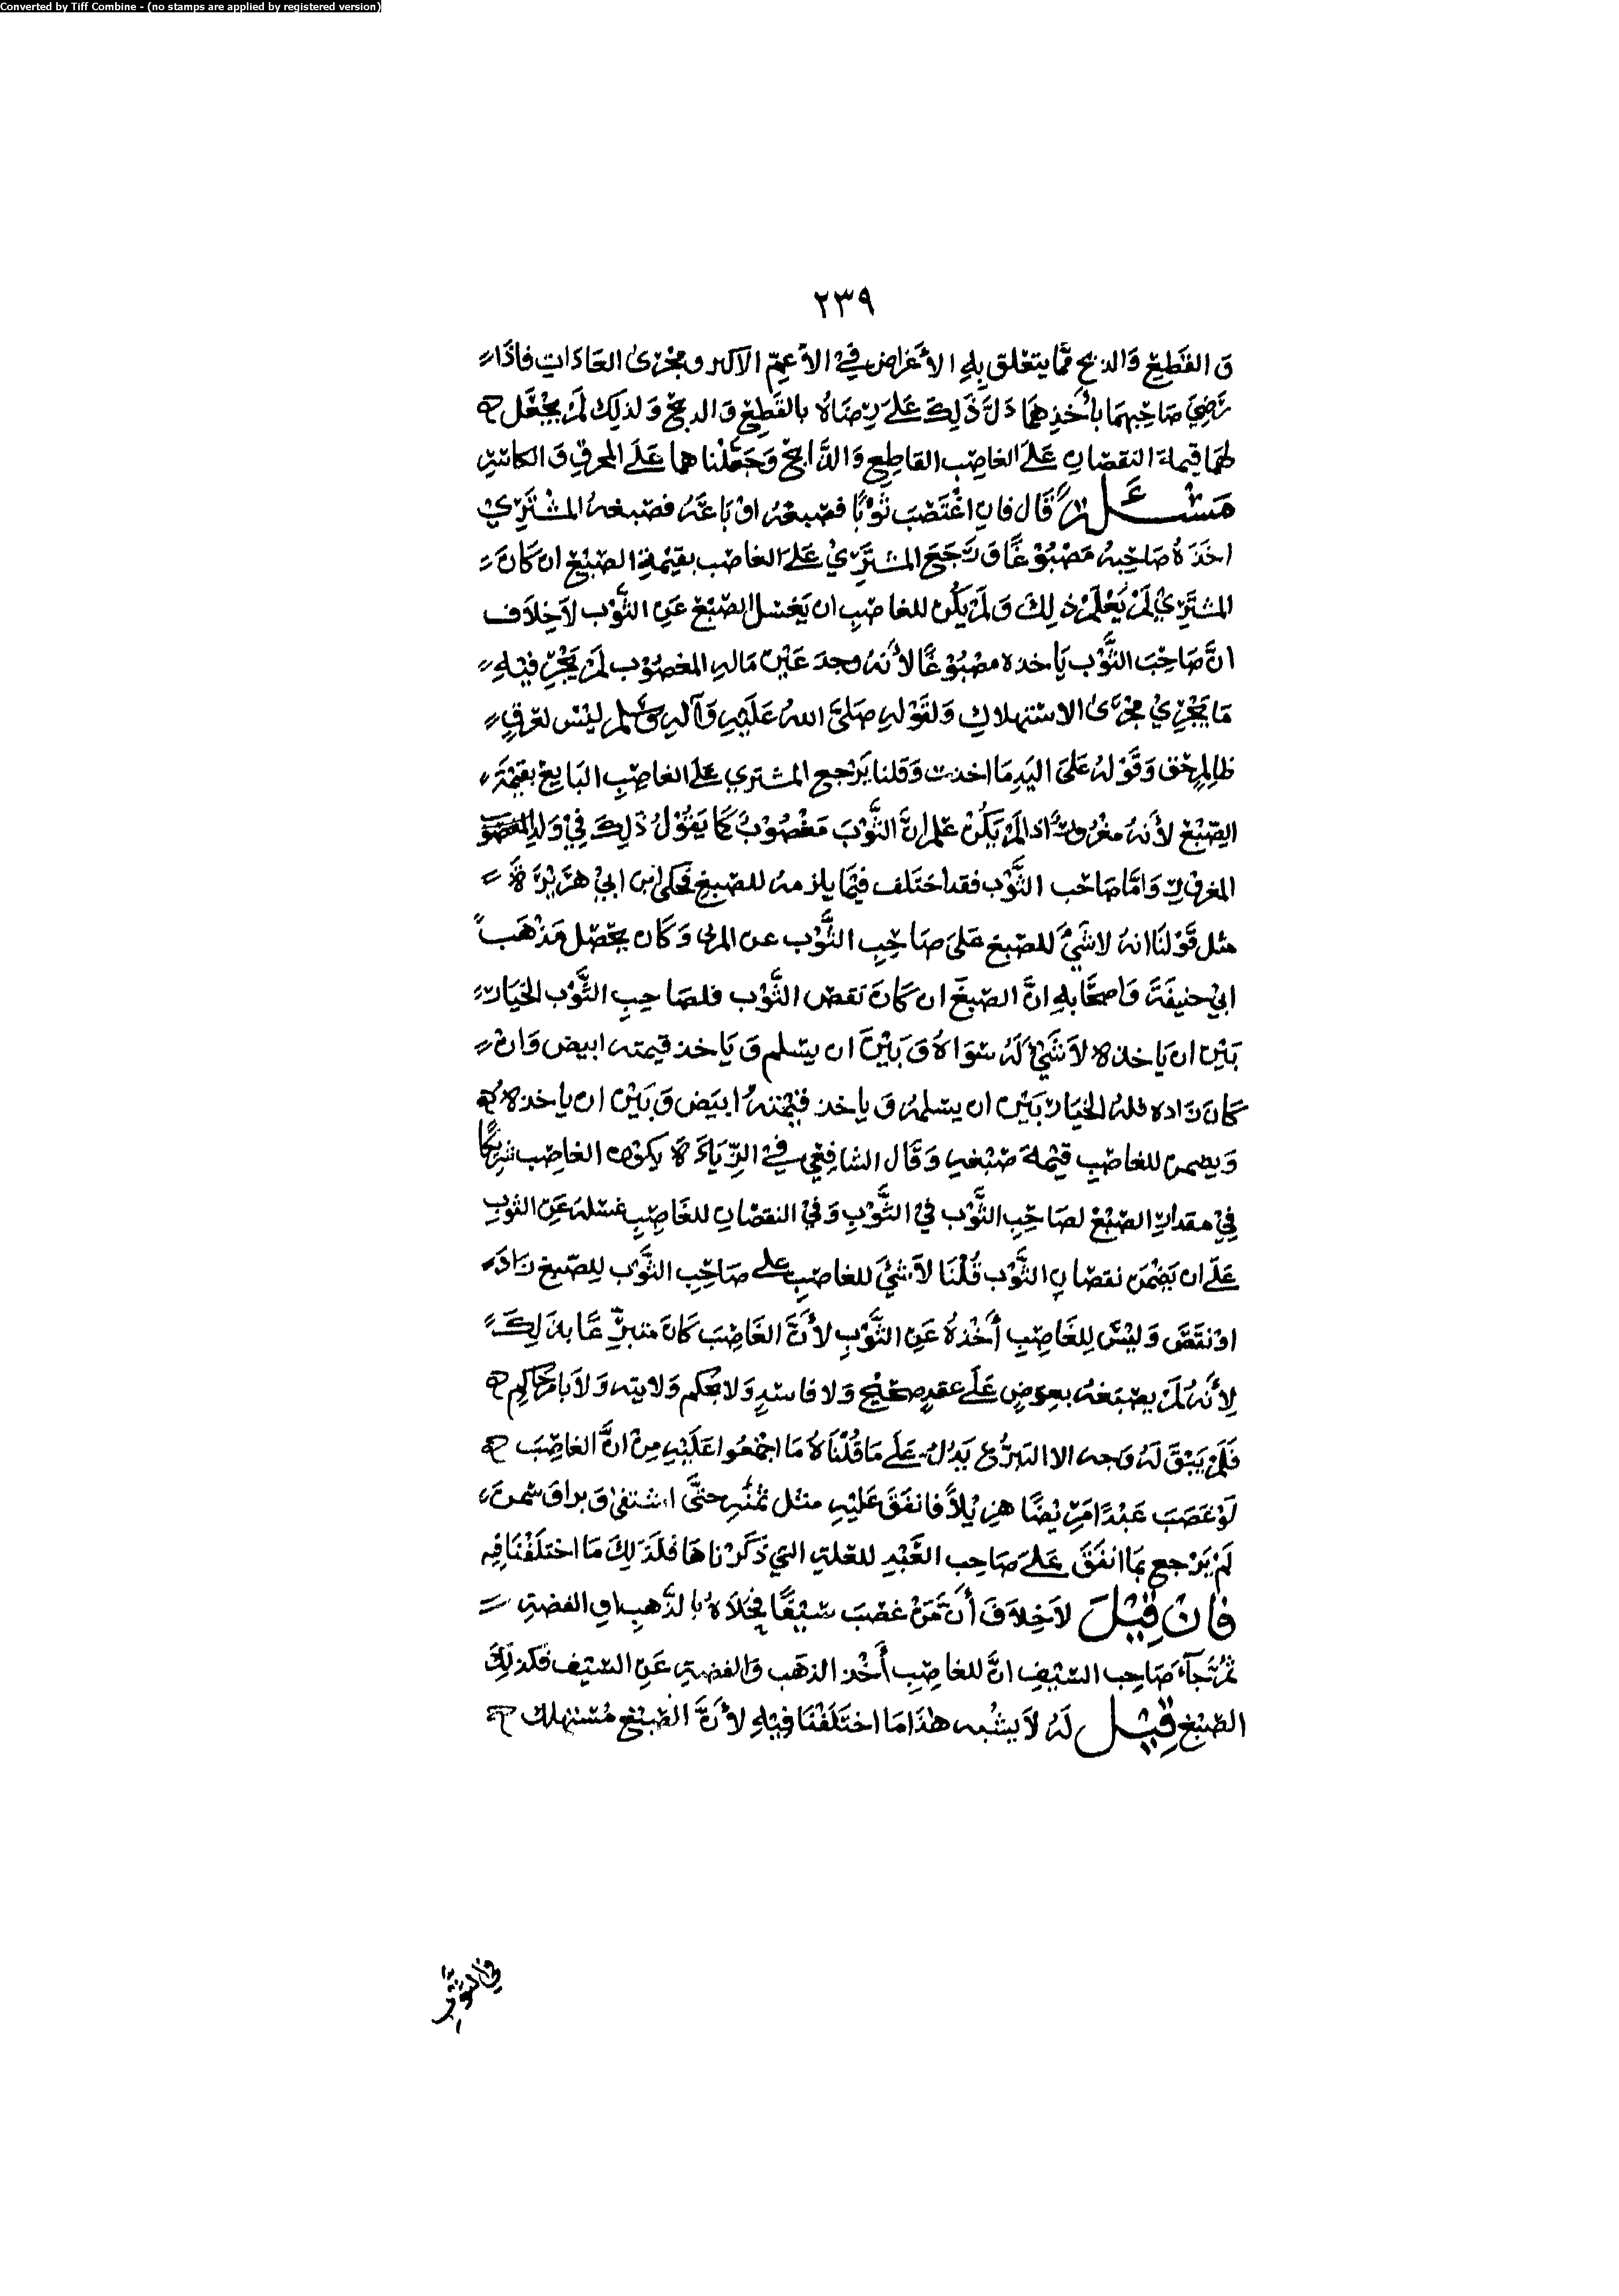 Converted by Tiff Combine - (no stamps are applied by registered version)
٢٣٩
و القطع والذبح مما يتعلق به الأغراض في الأعم الأكبر ومجرى العادات فاذا
رضي صاحبهما بأخذهما دل ذلك على رضاه بالقطع والذبح ولذلك لم يجعل
لهما قيمة النقصان على الغاصب القاطع والذابح وجعلنا هما على المحرق والكاسر
مسئلة قال فان اغتصب ثوبا فصبغه او باعه فصبغه المشتري
اخذه صاحبه مصبوغا ورجع المشتري على الغاصب بقيمة الصبغ ان كان
المشتري لم يعلم ذلك ولم يكن للغاصب ان يغسل الصبغ عن الثوب لاخلاف
ان صاحب الثوب ياخذه مصبوغا لأنه وجد عين ماله المغصوب لم يجر فيه
ما يجري مجرى الاستهلاك ولقوله صلى الله عليه وآله وسلم ليس لعرق
ظالم حق وقوله على اليد ما اخذت وقلنا يرجع المشتري على الغاصب البايع بقيمة
الصبغ لأنه مغرور اذا لم يكن علم ان الثوب مغصوب كما يقول ذلك في ولد المغصوب
المغرور واما صاحب الثوب فقد اختلف فيما يلزمه للصبغ فحكى ابن ابي هريرة
مثل قولنا انه لا شيء للصبغ على صاحب الثوب عن المزني وكان يحصل مذهب
ابي حنيفة واصحابه ان الصبغ ان كان نقص الثوب فلصاحب الثوب الخيار
بين ان ياخذه لا شيء له سواه وبين ان يسلم و ياخذ قيمته ابيض وان
كان زاده فله الخيار بين ان يسلمه و ياخذ قيمته ابيض وبين ان ياخذه
ويضمن للغاصب قيمة صبغه وقال الشافعي في الزيادة يكون الغاصب شريكا
في مقدار الصبغ لصاحب الثوب في الثوب وفي النقصان للغاصب غسله عن الثوب
على ان يضمن نقصان الثوب قلنا لا شيء للغاصب على صاحب الثوب للصبغ زاد
او نقص وليس للغاصب أخذه عن الثوب لأن الغاصب كان متبرعا بذلك
لأنه لم يصبغه بعوض على عقد صحيح ولا فاسد ولا بحكم ولايته ولا بامر حاكم
فلم يبق له وجه الا التبرع يدل على ما قلناه ما اجمعوا عليه من ان الغاصب
لو غصب عبدا مريضا هزيلا فانفق عليه مثل ثمنه حتى اشتفى و برا و سمن
لم يرجع بما انفق على صاحب العبد للعلة التي ذكرناها فلذلك ما اختلفنا فيه
فان قيل لا خلاف أن من غصب سيفا فحلاه بالذهب او الفضة
ثم جآء صاحب السيف ان للغاصب أخذ الذهب والفضة عن السيف فكذلك
الصبغ قيل له لا يشبه هذا ما اختلفنا فيه لأن الصبغ مستهلك